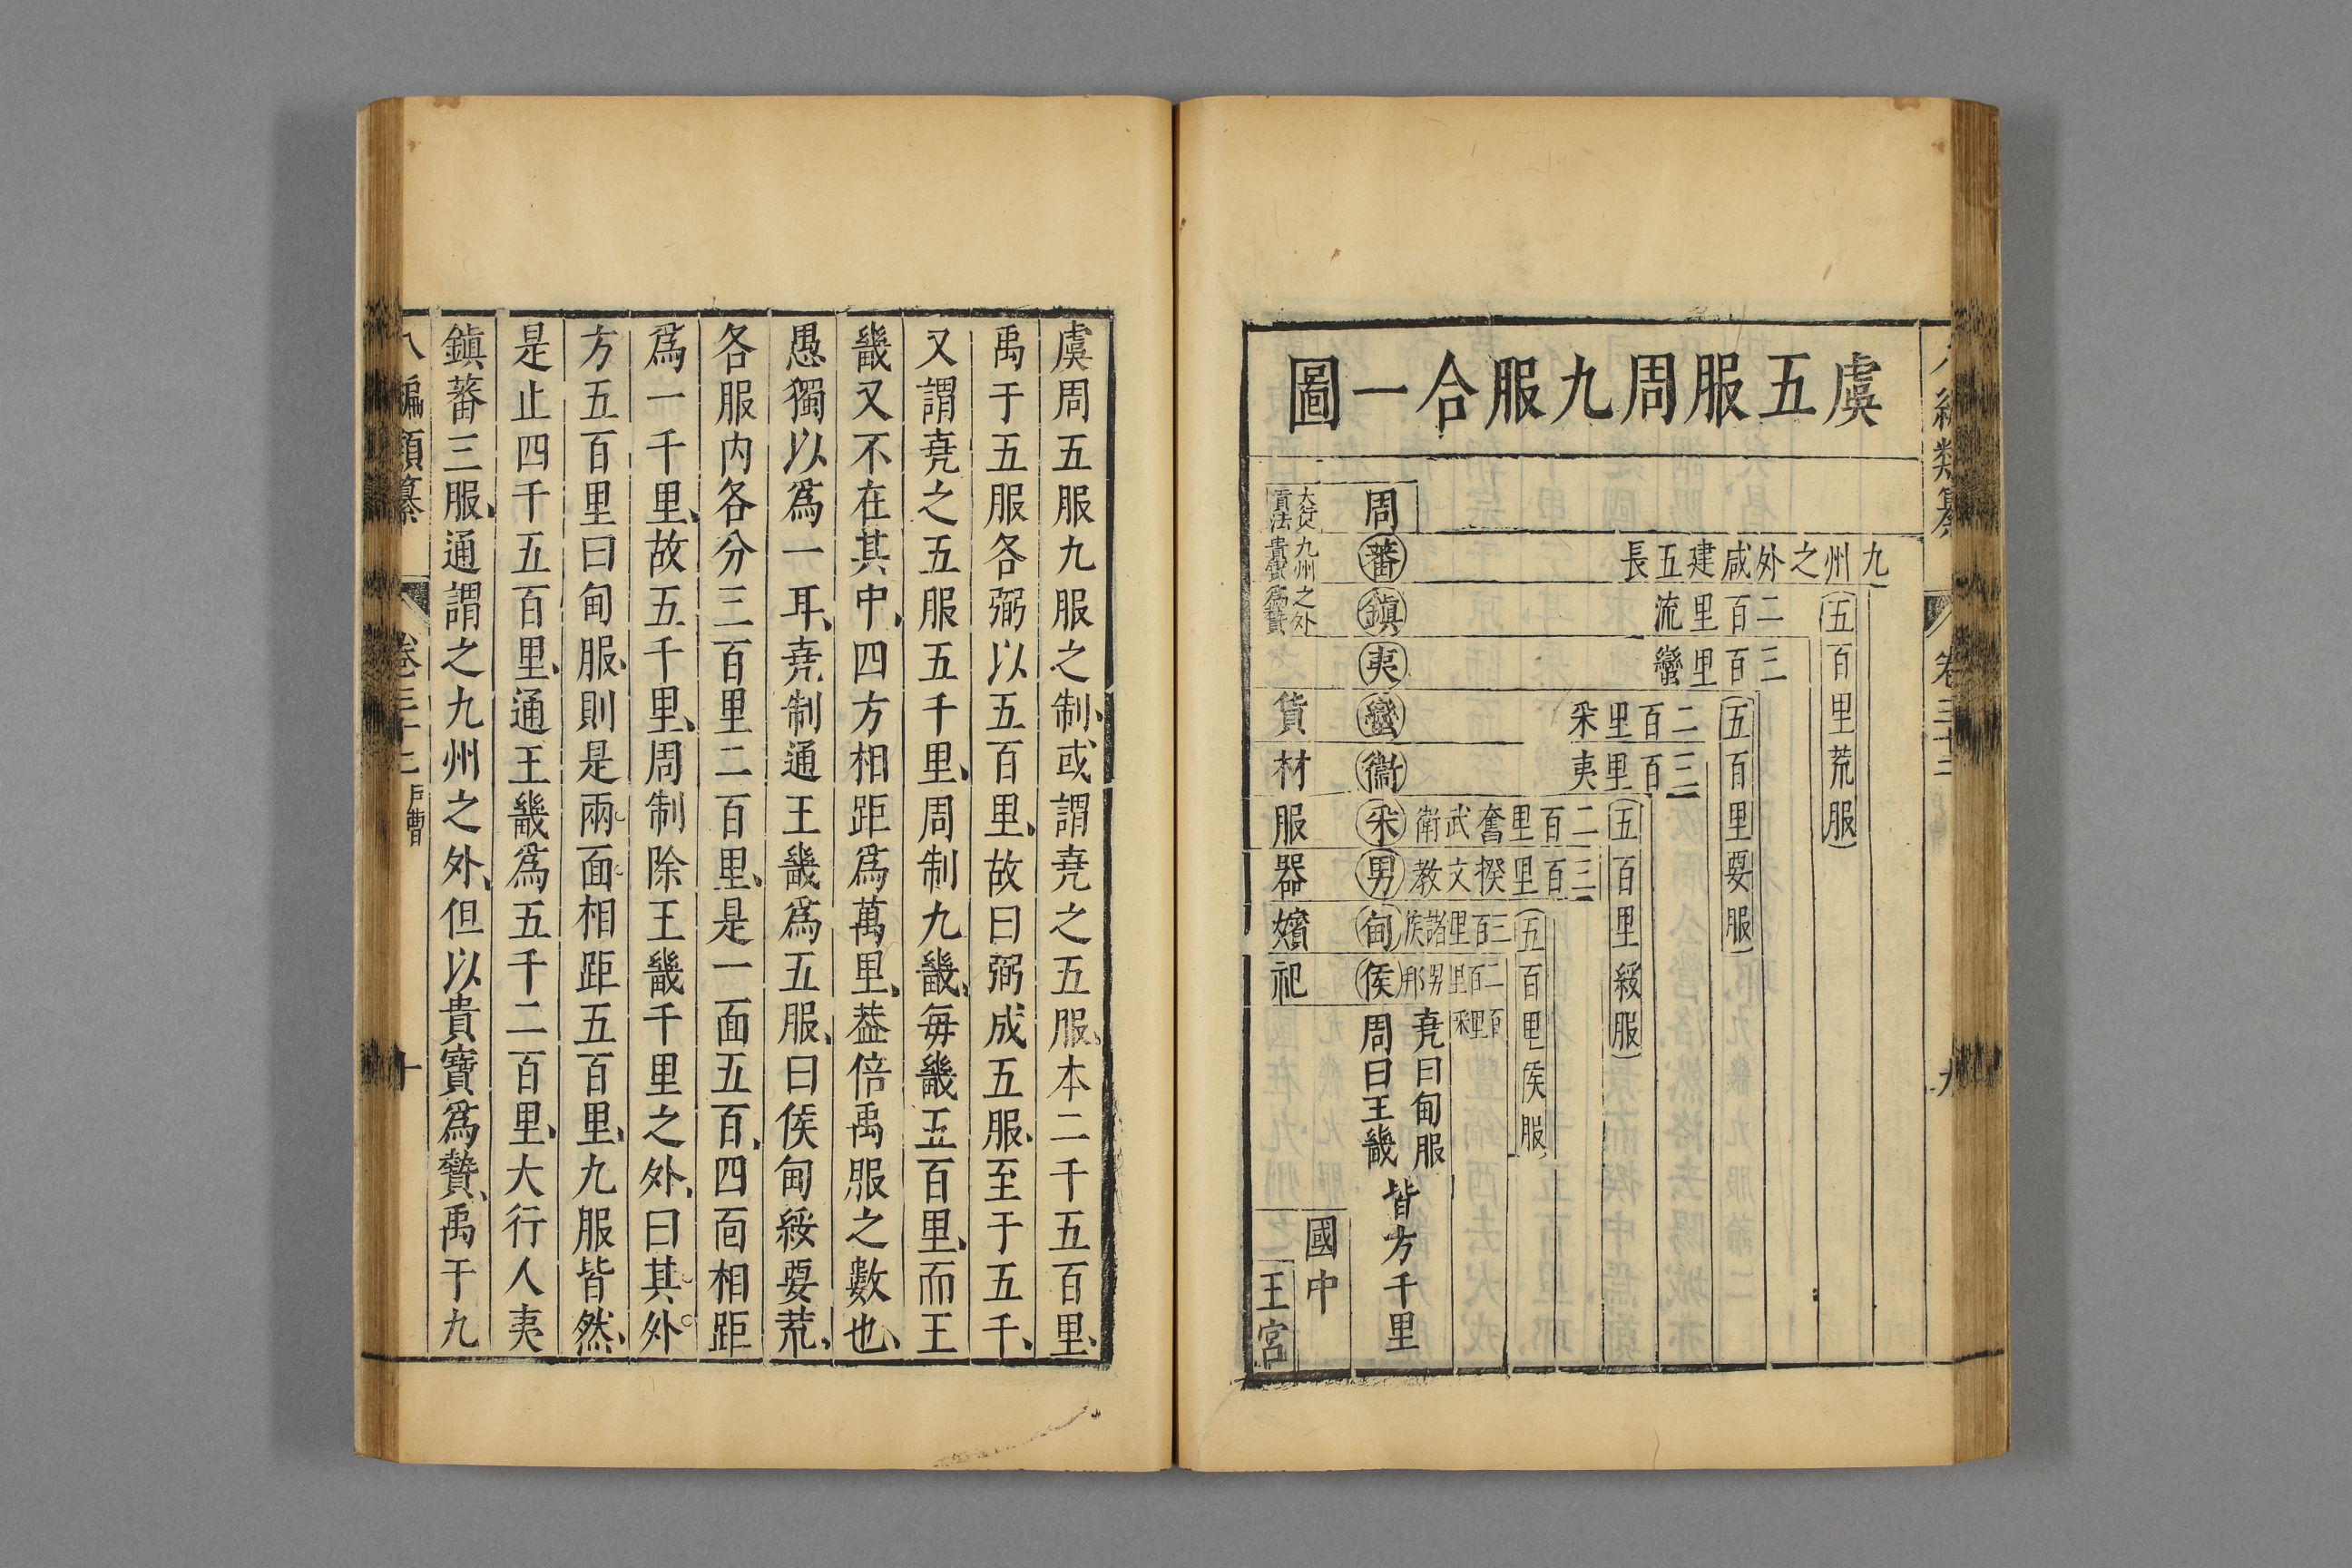 虞五服周九服合一圖
九州之外咸建五長
五百里荒服
二百里流
三百里蠻
五百里要服
二百里釆
三百里夷
五百里綏服
二百里奮武衛
三百里揆文教
五百里侯服
三百里諸侯
二百里男邦
百里釆
周
蕃
鎮
夷
蠻
衞
釆
男
甸
侯
堯曰甸服
周曰王畿
皆方千里
九州之外
貴寶爲贄
貨
材
服
器
嬪
祀
國中
王宮
虞周五服九服之制或謂堯之五服本二千五百里
禹于五服各弼以五百里故曰弼成五服至于五千
又謂堯之五服五千里周制九畿每畿五百里而王
畿又不在其中四方相距爲萬里葢倍禹服之數也
愚獨以爲一耳堯制通王畿爲五服曰侯甸綏要荒
各服内各分三百里二百里是一面五百四面相距
爲一千里故五千里周制除王畿千里之外曰其外
方五百里曰甸服則是兩面相距五百里九服皆然
是止四千五百里通王畿爲五千二百里大行人夷
鎮蕃三服通謂之九州之外但以貴寶爲贄禹于九
八編類纂
戶曹
十